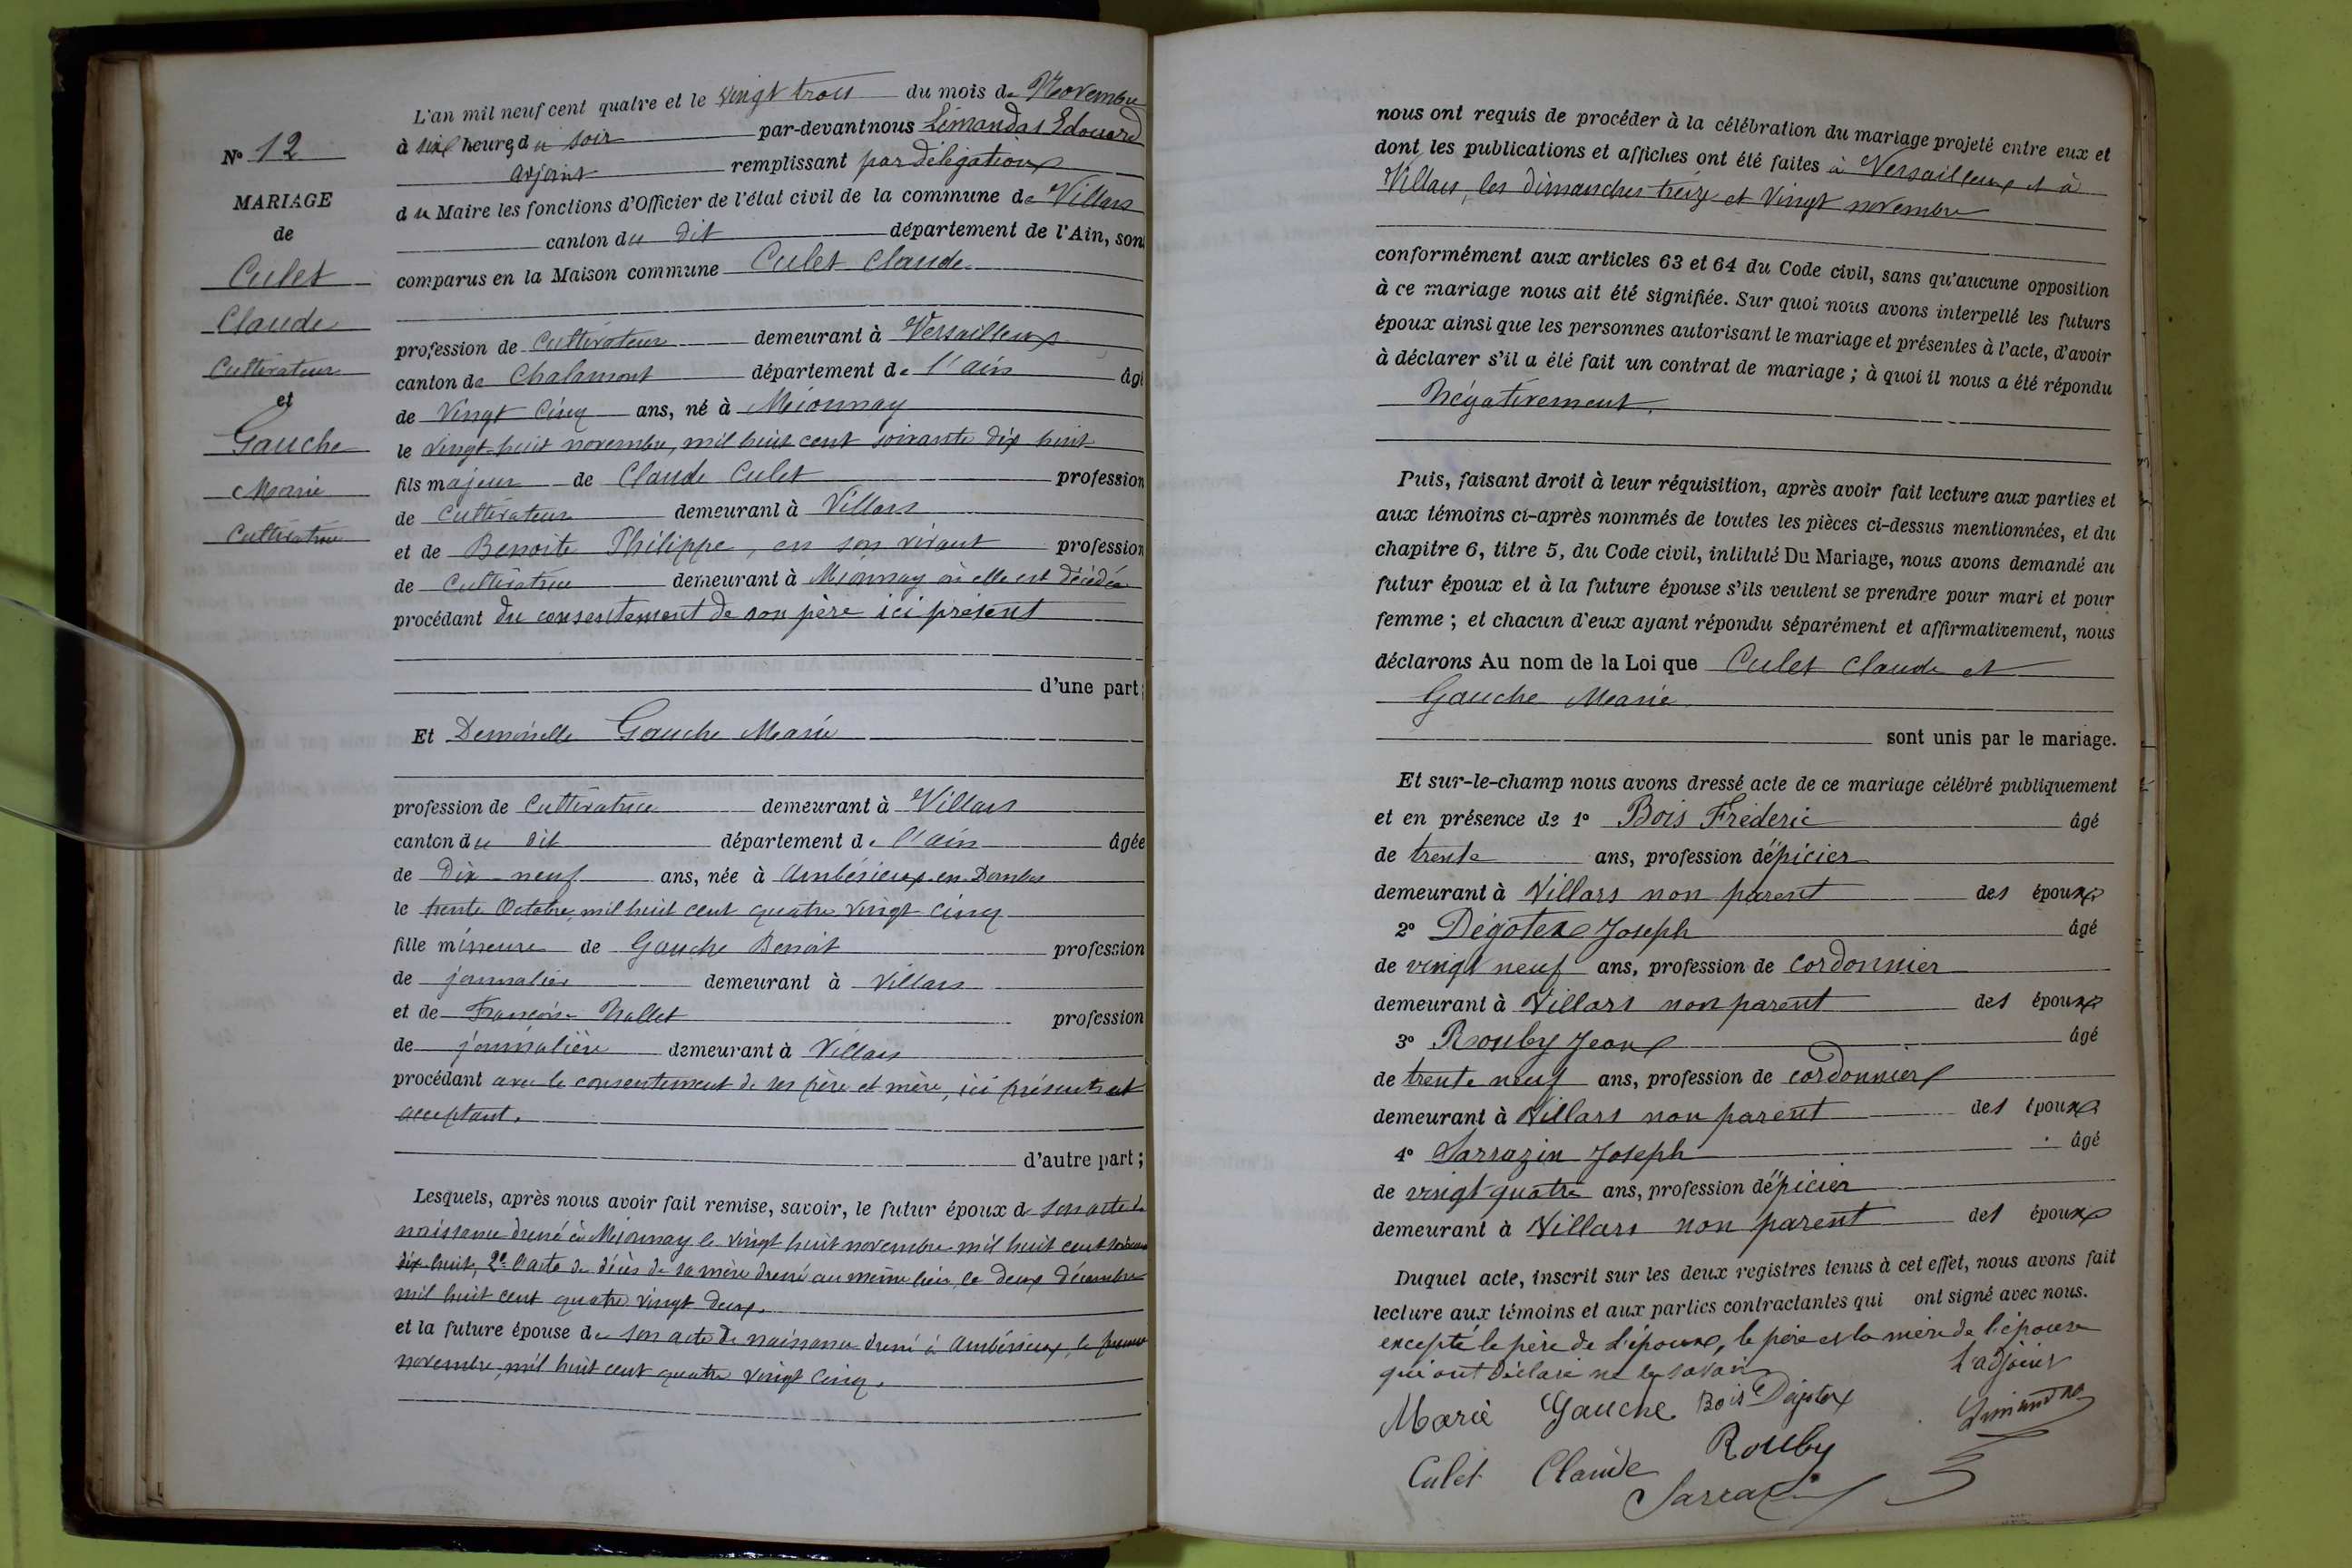 L'an mil neuf cent quatre et le vingt trois du mois de Novembre
à six heures du soir par-devant nous Limandas Edouard
adjoint remplissant par délégation
du Maire les fonctions d'Officier de l'état civil de la commune de Villars
canton du dit département de l'Ain, sont
comparus en la Maison commune Culet Claude
profession de Cultivateur demeurant à Versailleux
canton de Chalamont département de l'ain âgé
de Vingt Cinq ans, né à Mionnay
le vingt-huit novembre, mil huit cent soixante dix huit
fils majeur de Claude Culet profession
de Cultivateur demeurant à Villars
et de Benoite Philippe, en son vivant profession
de Cultivatrice demeurant à Mionnay où elle est décédée
procédant du consentement de son père ici présent
d'une part;
Et Demoiselle Gauche Marie
profession de Cultivatrice demeurant à Villars
canton du dit département de l'ain âgée
de Dix-neuf ans, née à Ambérieux-en-Dombes
le trente Octobre, mil huit cent quatre vingt cinq
fille mineure de Gauche Benoit profession
de journalier demeurant à Villars
et de Françoise Nallet profession
de journalière demeurant à Villars
procédant avec le consentement de ses père et mère, ici présents et
acceptant.
d'autre part;
Lesquels, après nous avoir fait remise, savoir, le futur époux de son acte de
naissance dressé à Mionnay le vingt huit novembre mil huit cent soixante
dix-huit, 2° l'acte de décès de sa mère dressé au même lieu, le deux décembre
mil huit cent quatre vingt deux.
et la future épouse de son acte de naissance dressé à Ambérieux, le premier
novembre, mil huit cent quatre vingt cinq.
N° 12
MARIAGE
de
Culet
Claude
Cultivateur
et
Gauche
Marie
Cultivatrice
nous ont requis de procéder à la célébration du mariage projeté entre eux et
dont les publications et affiches ont été faites à Versailleux et à
Villars, les dimanches treize et Vingt novembre
conformément aux articles 63 et 64 du Code civil, sans qu'aucune opposition
à ce mariage nous ait été signifiée. Sur quoi nous avons interpellé les futurs
époux ainsi que les personnes autorisant le mariage et présentes à l'acte, d'avoir
à déclarer s'il a été fait un contrat de mariage; à quoi il nous a été répondu
Négativement.
Puis, faisant droit à leur réquisition, après avoir fait lecture aux parties et
aux témoins ci-après nommés de toutes les pièces ci-dessus mentionnées, et du
chapitre 6, titre 5, du Code civil, intitulé Du Mariage, nous avons demandé au
futur époux et à la future épouse s'ils veulent se prendre pour mari et pour
femme; et chacun d'eux ayant répondu séparément et affirmativement, nous
déclarons Au nom de la Loi que Culet Claude et
Gauche Marie
sont unis par le mariage.
Et sur-le-champ nous avons dressé acte de ce mariage célébré publiquement
et en présence de 1° Bois Frédéric âgé
de trente ans, profession d'épicier
demeurant à Villars non parent des époux
2° Dégotex Joseph âgé
de vingt neuf ans, profession de cordonnier
demeurant à Villars non parent des époux
3° Rouby Jean âgé
de trente neuf ans, profession de cordonnier
demeurant à Villars non parent des époux
4° Sarrazin Joseph âgé
de vingt quatre ans, profession d'épicier
demeurant à Villars non parent des époux
Duquel acte, inscrit sur les deux registres tenus à cet effet, nous avons fait
lecture aux témoins et aux parties contractantes qui ont signé avec nous.
excepté le père de l'époux, le père et la mère de l'épouse
qui ont déclaré ne le savoir
L'adjoint
Marie Gauche Bois Dégotex Limandas
Culet Claude Rouby
Sarrazin